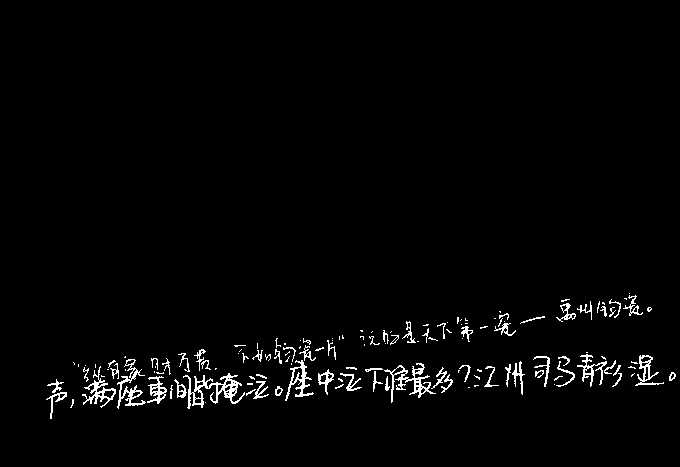 "纵有家财万贯，不如钧瓷一片"说的是天下第一瓷——禹州钧瓷。
声，满座重闻皆掩泣。座中泣下谁最多？江州司马青衫湿。